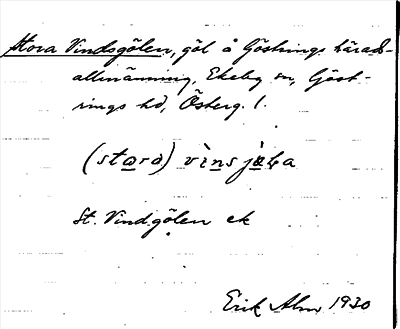 Stora Vindsgölen, göl å Göstrings härads-
allmänning, Ekeby sn, Göst-
rings hd, Österg. l.
(stara) vìnsjäḷa
St. Vindgölen ek
Erik Alm 1930